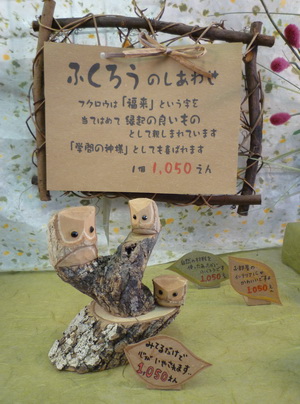 ふくろうのしあわせ
フクロウは「福来」という字を
当てはめて縁起の良いもの
として親しまれています
「学問の神様」としても喜ばれます
1個 1,050えん
みてるだけで
心がいやされます。
1,050えん
1,050
1,050